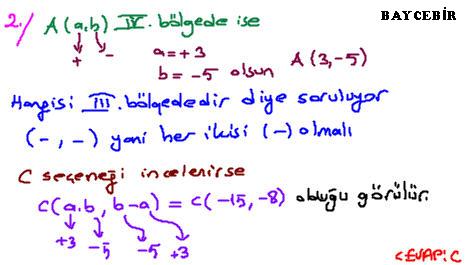 BAYCEBİR
2./ A(a,b) IV. bölgede ise
+ -
a=+3
b=-5 olsun A(3,-5)
Hangisi III. bölgededir diye soruluyor
(-,-) yani her ikisi (-) olmalı
C seçeneği incelenirse
C(a.b, b-a) = C(-15,-8) olduğu görülür.
+3 -5 -5 +3
CEVAP: C